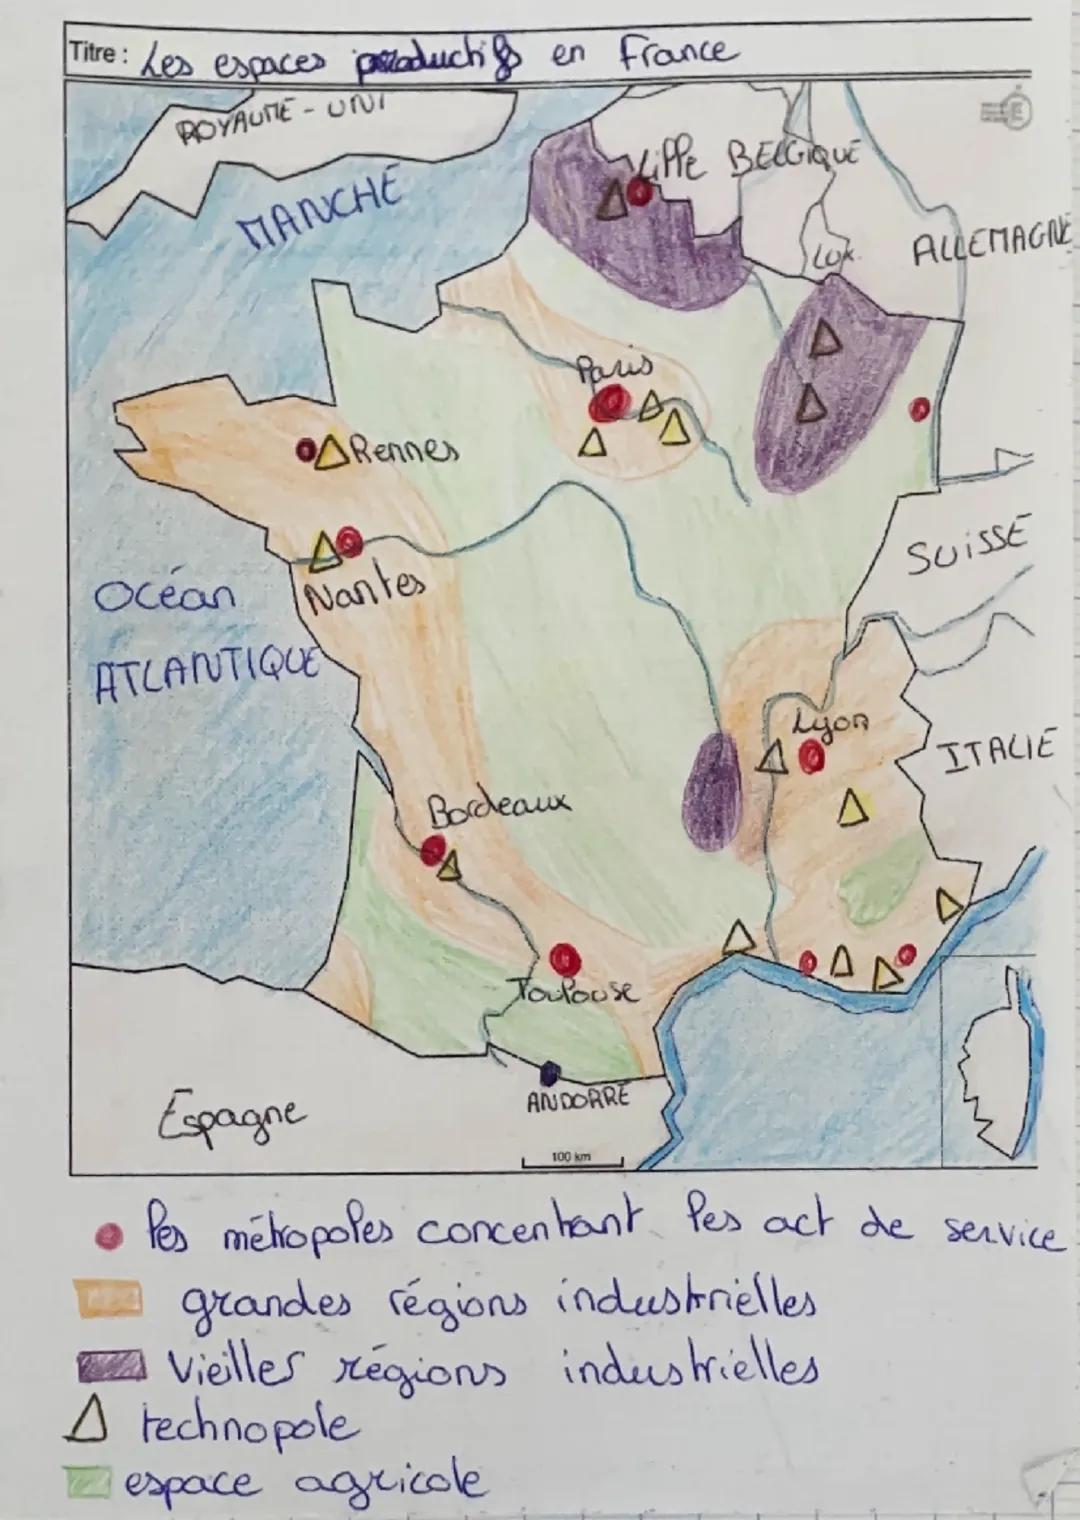 Titre : Les espaces productifs en France
ROYAUME-UNI
MANCHE
Lille
BELGIQUE
Lux.
ALLEMAGNE
Paris
Rennes
SUISSE
Nantes
Océan
ATLANTIQUE
Lyon
ITALIE
Bordeaux
Toulouse
ANDORRE
Espagne
100 km
les métropoles concentrant les act de service
grandes régions industrielles
Vieilles régions industrielles
technopole
espace agricole